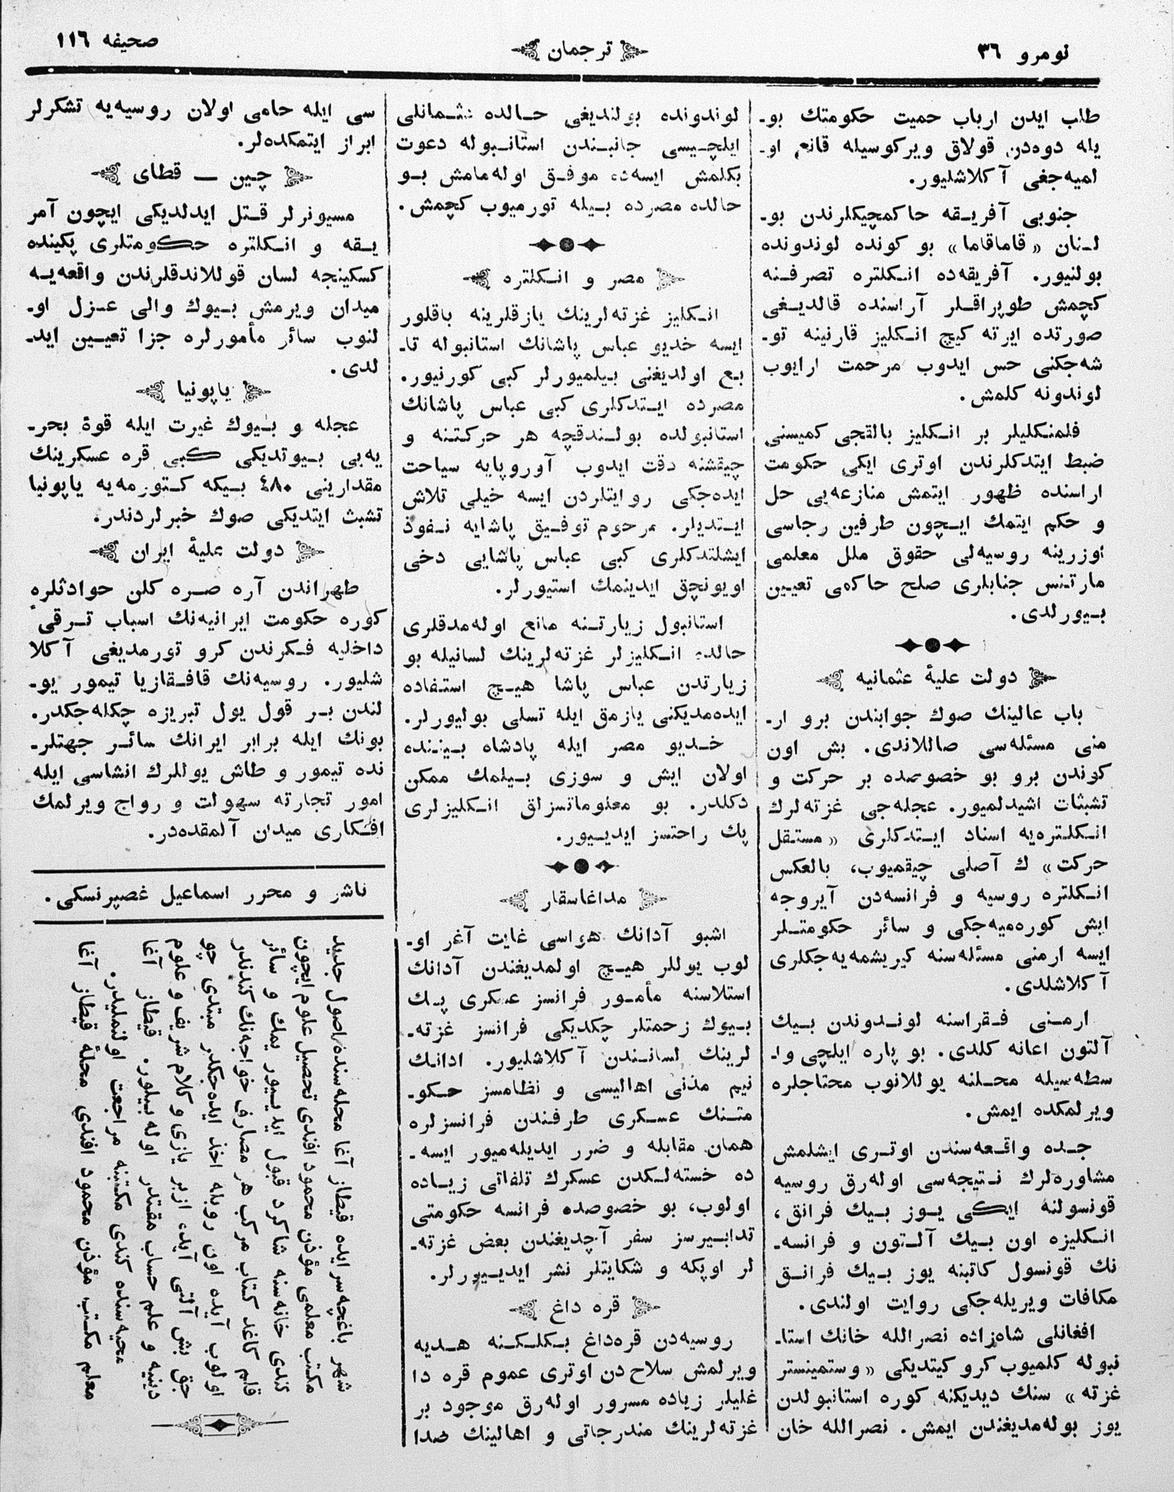 نومرو ٣٦
ترجمان
صحیفه ١١٦
طلب ایدن ارباب حمیت حکومتك بو۔
یله دوه‌دن قولاق ویرکوسیله قانع او۔
لمیه‌جغی آکلاشلیور.
جنوبی آفریقه حاکمچیکلرندن بو۔
لنان «قاماقاما» بو کونده لوندونده
بولنیور. آفریقه‌ده انکلتره تصرفنه
کچمش طوپراقلر آراسنده قالدیغی
صورتده ایرته کیچ انکلیز قارنینه تو۔
شه‌جکنی حس ایدوب مرحمت ارایوب
لوندونه کلمش.
فلمنکلیلر بر انکلیز بالقجی کمیسنی
ضبط ایتدکلرندن اوتری ایکی حکومت
اراسنده ظهور ایتمش منازعه‌یی حل
و حکم ایتمك ایچون طرفین رجاسی
اوزرینه روسیه‌لی حقوق ملل معلمی
مارتنس جنابلری صلح حاکمی تعیین
بیورلدی.
دولت علیهٔ عثمانیه
باب عالینك صوك جوابندن برو ار۔
منی مسئله‌سی صاللاندی. بش اون
کوندن برو بو خصوصده بر حرکت و
تشبثات اشیدلمیور. عجله‌جی غزته‌لرك
انکلتره‌یه اسناد ایتدکلری «مستقل
حرکت» ك آصلی چیقمیوب، بالعکس
انکلتره روسیه و فرانسه‌دن آیروجه
ایش کوره‌میه‌جکی و سائر حکومتلر
ایسه ارمنی مسئله‌سنه کیریشمه‌یه‌جکلری
آکلاشلدی.
ارمنی فقراسنه لوندوندن بیك
آلتون اعانه کلدی. بو پاره ایلچی وا۔
سطه‌سیله محلنه یوللانوب محتاجلره
ویرلمکده ایمش.
جده واقعه‌سندن اوتری ایشلمش
مشاوره‌لرك نتیجه‌سی اوله‌رق روسیه
قونسولنه ایکی یوز بیك فرانق،
انکلیزه اون بیك آلتون و فرانسه۔
نك قونسول کاتبنه یوز بیك فرانق
مکافات ویریله‌جکی روایت اولندی.
افغانلی شاهزاده نصرالله خانك استا۔
نبوله کلمیوب کرو کیتدیکی «وستمینستر
غزته» سنك دیدیکنه کوره استانبولدن
یوز بوله‌مدیغندن ایمش. نصرالله خان
لوندونده بولندیغی حالده عثمانلی
ایلچیسی جانبندن استانبوله دعوت
بکلمش ایسه‌ده موفق اوله‌مامش بو
حالده مصرده بیله تورمیوب کچمش.
مصر و انکلتره
انکلیز غزته‌لرینك یازقلرینه باقلور
ایسه خدیو عباس پاشانك استانبوله تا۔
بع اولدیغنی بیلمیورلر کبی کورنیور.
مصرده ایتدکلری کبی عباس پاشانك
استانبولده بولندقچه هر حرکتنه و
چیقشنه دقت ایدوب آوروپایه سیاحت
ایده‌جکی روایتلردن ایسه خیلی تلاش
ایتدیلر. مرحوم توفیق پاشایه نفوذ
ایشلتدکلری کبی عباس پاشایی دخی
اویونچق ایدینمك استیورلر.
استانبول زیارتنه مانع اوله‌مدقلری
حالده انکلیزلر غزته‌لرینك لسانیله بو
زیارتدن عباس پاشا هیچ استفاده
ایده‌مدیکنی یازمق ایله تسلی بولیورلر.
خدیو مصر ایله پادشاه بیننده
اولان ایش و سوزی بیلمك ممکن
دکلدر. بو معلوماتسزلق انکلیزلری
پك راحتسز ایدییور.
مداغاسقار
اشبو آدانك هواسی غایت آغر او۔
لوب یوللر هیچ اولمدیغندن آدانك
استلاسنه مأمور فرانسز عسکری پك
بیوك زحمتلر چکدیکی فرانسز غزته۔
لرینك لسانندن آکلاشلیور. ادانك
نیم مدنی اهالیسی و نظامسز حکو۔
متنك عسکری طرفندن فرانسزلره
همان مقابله و ضرر ایدیله‌میور ایسه۔
ده خسته‌لکدن عسکرك تلفاتی زیاده
اولوب، بو خصوصده فرانسه حکومتی
تدابیرسز سفر آچدیغندن بعض غزته۔
لر اوپکه و شکایتلر نشر ایدییورلر.
قره داغ
روسیه‌دن قره‌داغ بکلکنه هدیه
ویرلمش سلاح‌دن اوتری عموم قره دا
غلیلر زیاده مسرور اوله‌رق موجود بر
غزته‌لرینك مندرجاتی و اهالینك صدا
سی ایله حامی اولان روسیه‌یه تشکرلر
ابراز ایتمکده‌لر.
چین — قطای
مسیونرلر قتل ایدلدیکی ایچون آمر
یقه و انکلتره حکومتلری پکینده
کسکینجه لسان قوللاندقلرندن واقعه‌یه
میدان ویرمش بیوك والی عزل او۔
لنوب سائر مأمورلره جزا تعیین اید۔
لدی.
یاپونیا
عجله و بیوك غیرت ایله قوهٔ بحر۔
یه‌یی بیوتدیکی کبی قره عسکرینك
مقدارینی ٤٨٠ بیکه کتورمه‌یه یاپونیا
تشبث ایتدیکی صوك خبرلردندر.
دولت علیهٔ ایران
طهراندن آره صره کلن حوادثلره
کوره حکومت ایرانیه‌نك اسباب ترقیٔ
داخلیه فکرندن کرو تورمدیغی آکلا
شلیور. روسیه‌نك قافقازیا تیمور یو۔
لندن بر قول یول تبریزه چکله‌جکدر.
بونك ایله برابر ایرانك سائر جهتلر۔
نده تیمور و طاش یوللرك انشاسی ایله
امور تجارته سهولت و رواج ویرلمك
افکاری میدان آلمقده‌در.
ناشر و محرر اسماعیل غصپرنسکی.
شهر باغچه‌سرایده قیطاز آغا محله‌سنده اصول جدید
مکتب معلمی مؤذن محمود افندی تحصیل علوم ایچون
کندی خانه‌سنه شاکرد قبول ایدییور یمك و سائر
قلم کاغد کتاب مرکب هر مصارف خواجه‌نك کندندر
اولوب آیده اون روبله اخذ ایده‌جکدر مبتدی چو
جق بش التی آیده ازبر یازی و کلام شریف و علوم
دینیه و علم حساب مقتدر اوله بیلور. قیطاز آغا
محیه‌سنده کندی مکتبنه مراجعت اولنملیدر.
معلم مکتب، مؤذن محمود افندی محلهٔ قیطاز آغا